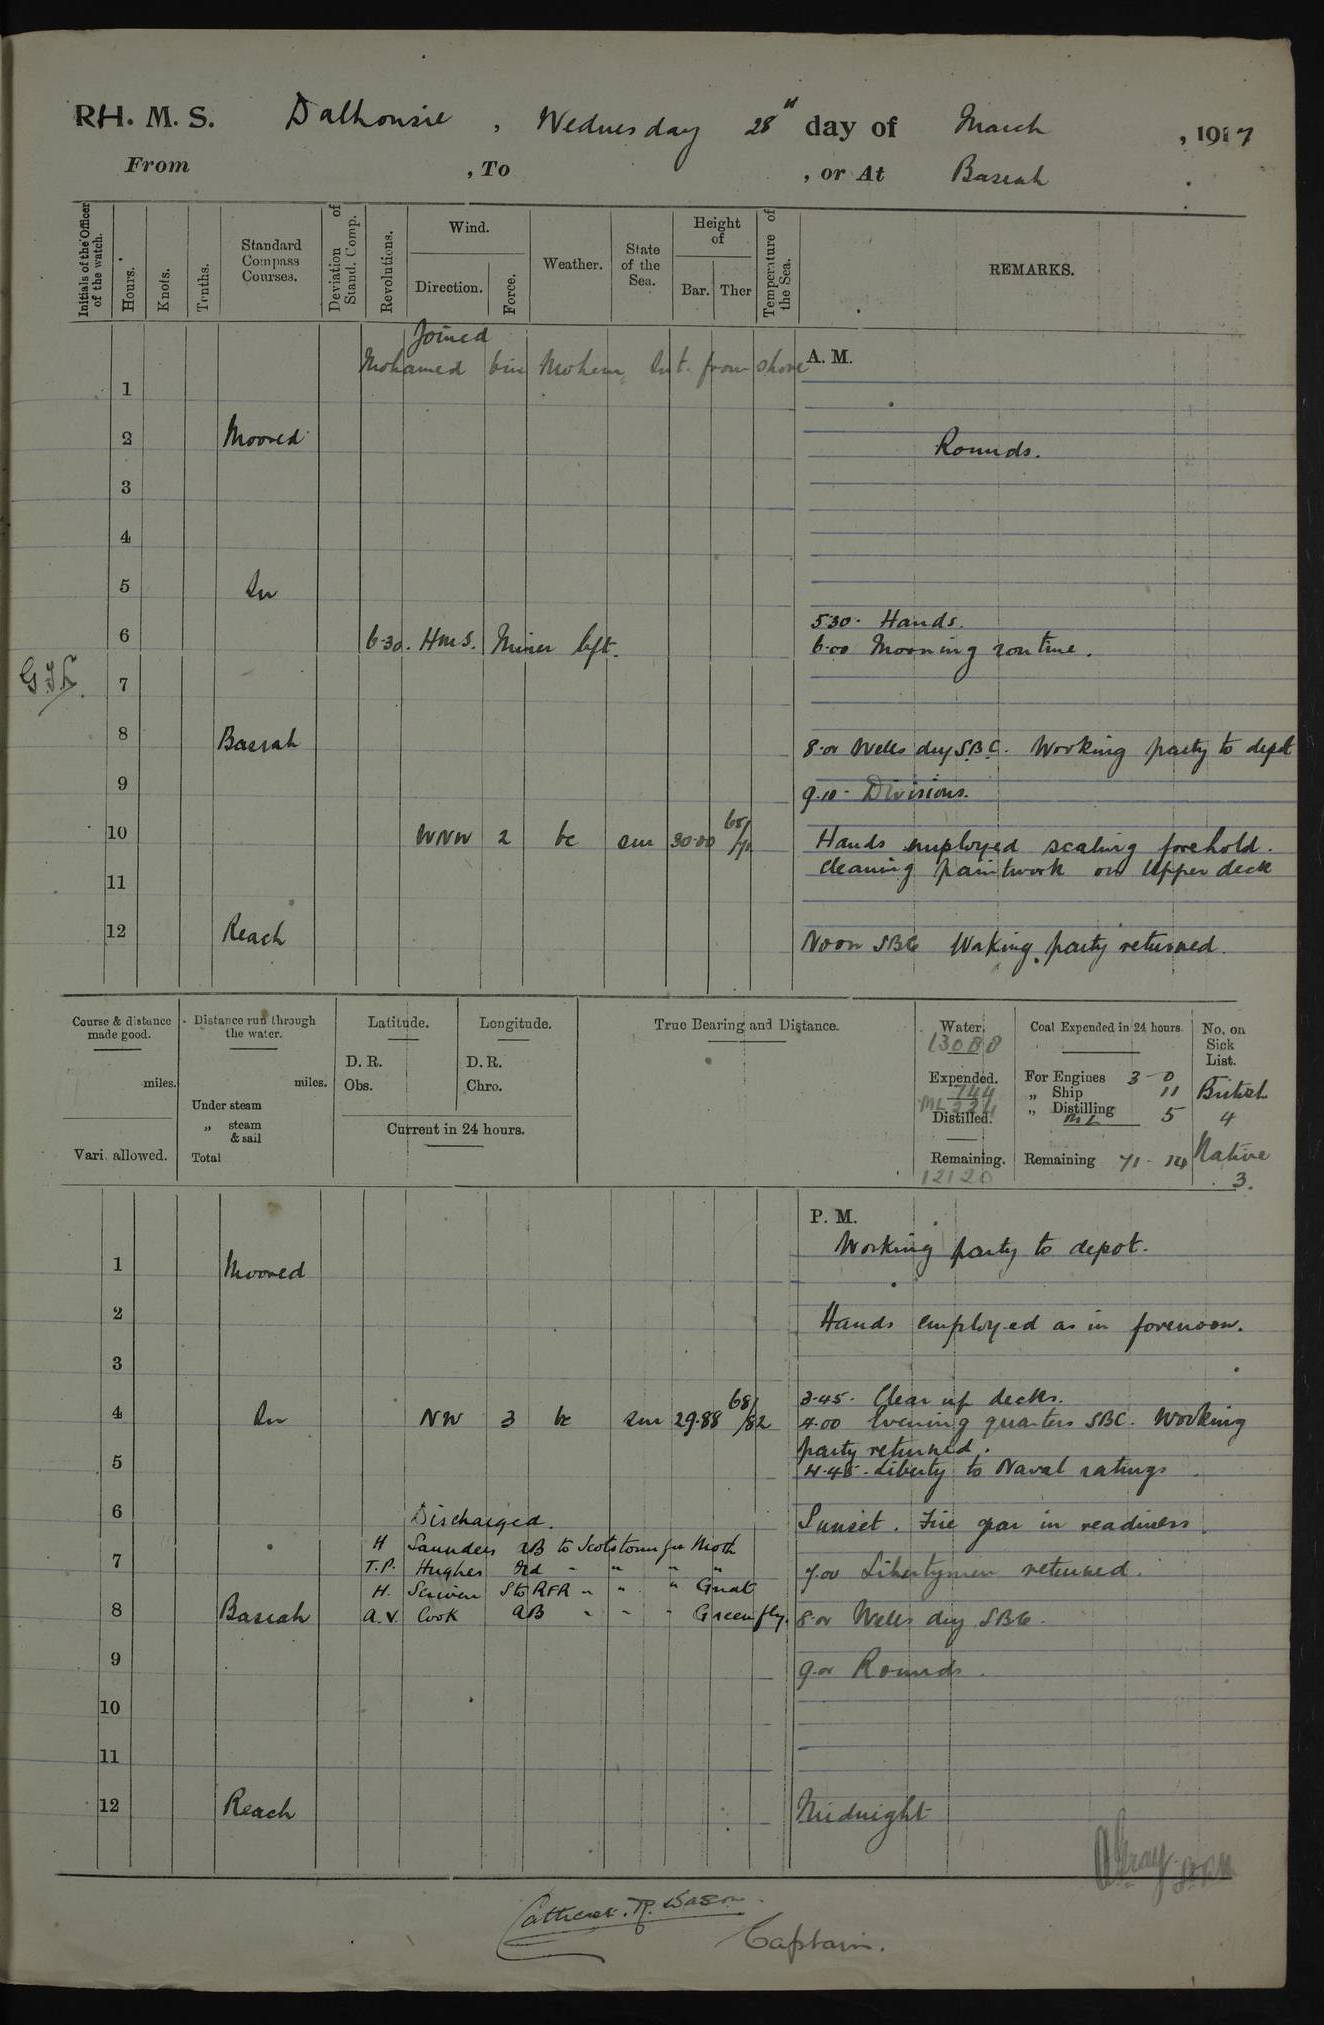 RH. M. S. Dalhousie, Wednesday 28th day of March, 1917
From , To , or At Basrah.
Initials of the Officer of the watch.
Hours.
Knots.
Tenths.
Standard Compass Courses.
Deviation of Stand. Comp.
Revolutions.
Wind.
Direction.
Force.
Weather.
State of the Sea.
Height of
Bar. Ther
Temperature of the Sea.
REMARKS.
Joined
Mohamed bin Mohem, Int. from shore
A. M.
1
2 Moored Rounds.
3
4
5 In
5.30. Hands.
6 6.30. H.M.S. Miner left. 6.00 Morning routine.
7
8 Basrah 8.00 Wells dry S.B.C. Working party to depot
9 9.10. Divisions.
10 WNW 2 bc sm 30.00 68/71 Hands employed scaling forehold.
cleaning paintwork on Upper deck
11
12 Reach Noon SBC Working party returned.
Course & distance made good.
miles.
Vari. allowed.
Distance run through the water.
miles.
Under steam
„ steam & sail
Total
Latitude.
D. R.
Obs.
Longitude.
D. R.
Chro.
Current in 24 hours.
True Bearing and Distance.
Water.
13088
Expended.
744
ML 224
Distilled.
Remaining.
12120
Coal Expended in 24 hours.
For Engines 3 - 0
„ Ship 11
„ Distilling
ML 5
Remaining 71 - 14
No. on Sick List.
British
4
Native
3.
P. M.
Working party to depot.
1 Moored
2 Hands employed as in forenoon.
3
3.45. Clear up decks.
4 In NW 3 bc sm 29.88 68/82 4.00 Evening quarters SBC. Working
party returned.
5 4.45. Liberty to Naval ratings
6 Discharged. Sunset. Fire gear in readiness.
H Saunders AB to Scotstoun for Moth
7 T.P. Hughes Ord " " " " 7.00 Libertymen returned.
H. Scriven Sto RFR " " " Gnat
8 Basrah A.V. Cook AB " " " Greenfly. 8.00 Wells dry SBC.
9 9.00 Rounds.
10
11
12 Reach Midnight
A Gray
Captain.